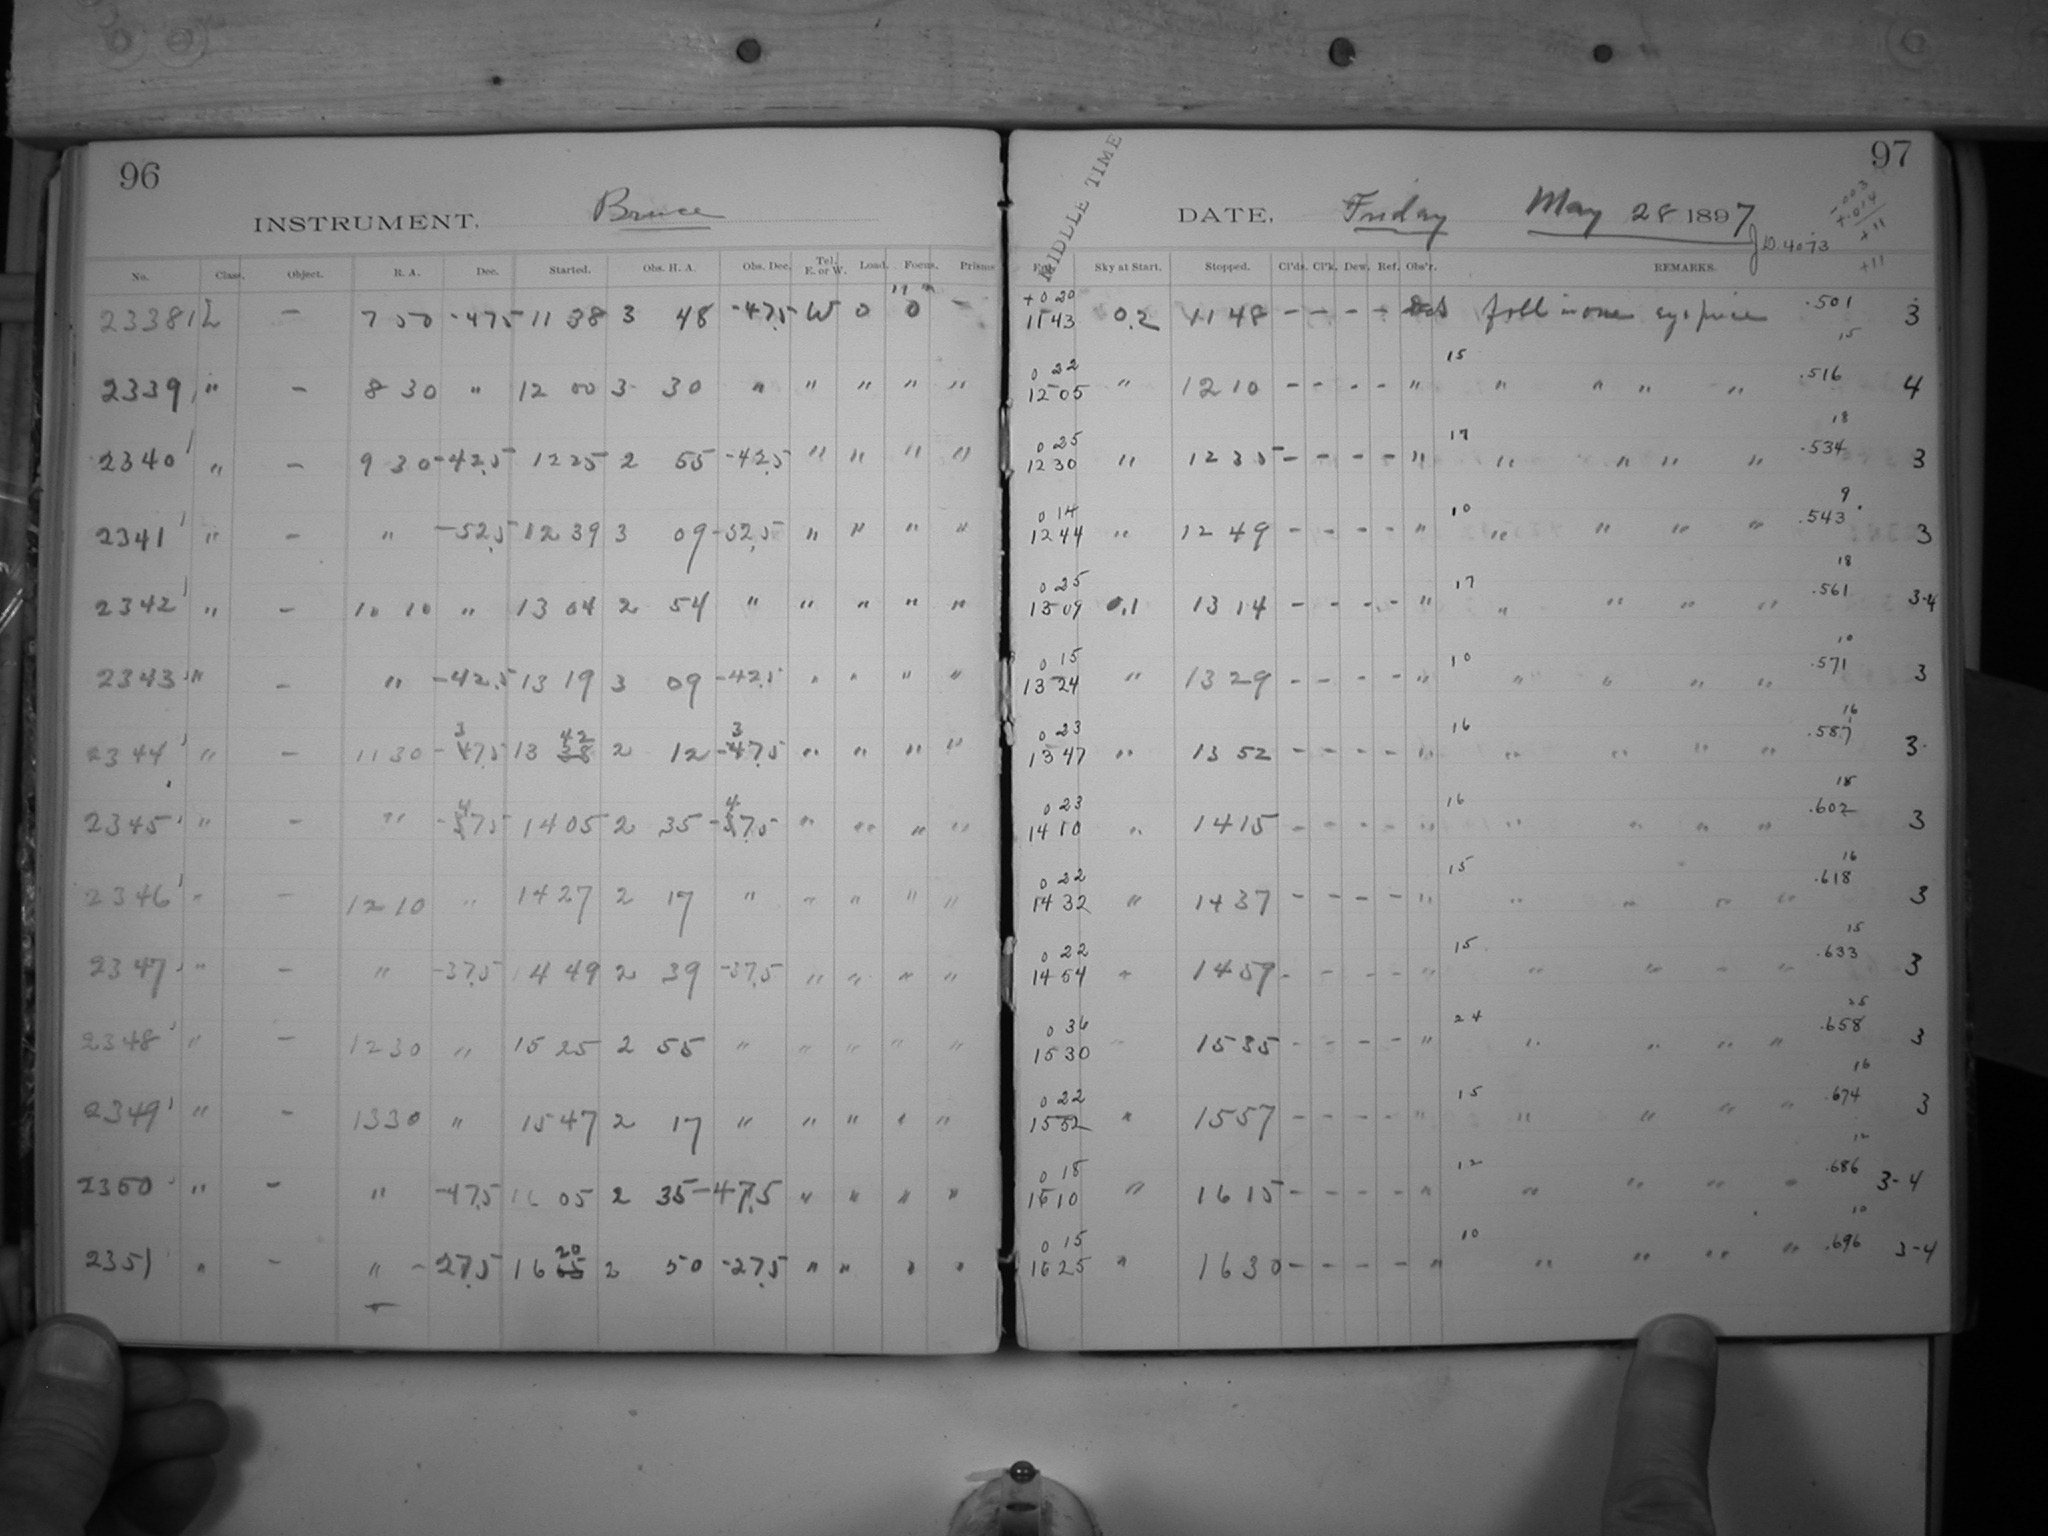 96
INSTRUMENT. Bruce
No. Class. Object. R. A. Dec. Started. Obs. H. A. Obs. Dec. Tel. E. or W. Load. Focus. Prisms
2338 L - 7 50 -47.5 11 38 3 48 -47.5 W 0 0 -
2339 " - 8 30 " 12 00 3 30 " " " " "
2340 " - 9 30 -42.5 12 25 2 55 -42.5 " " " "
2341 " - " -52.5 12 39 3 09 -52.5 " " " "
2342 " - 10 10 " 13 04 2 54 " " " " "
2343 " - " -42.5 13 19 3 09 -42.5 " " " "
3 42 3
2344 " - 11 30 -47.5 13 38 2 12 -47.5 " " " "
4 4
2345 " - " -37.5 14 05 2 35 -37.5 " " " "
2346 " - 12 10 " 14 27 2 17 " " " " "
2347 " - " -37.5 14 49 2 39 -37.5 " " " "
2348 " - 12 30 " 15 25 2 55 " " " " "
2349 " - 13 30 " 15 47 2 17 " " " " "
2350 " - " -47.5 16 05 2 35 -47.5 " " " "
20
2351 " - " -27.5 16 05 2 50 -27.5 " " " "
97
MIDDLE TIME
DATE. Friday May 28 1897
-.003
+.014
+11
J.D. 4073
+11
Sky at Start. Stopped. Cl'ds. Cl'k. Dew. Ref. Obs'r. REMARKS.
+0 20
11 43 0.2 11 48 - - - - foll in one eye piece .501 3
15
0 22 15
12 05 " 12 10 - - - - " " " " " .516 4
18
0 25 17
12 30 " 12 35 - - - - " " " " " .534 3
9
0 14 10
12 44 " 12 49 - - - - " " " " " .543 3
18
0 25 17
13 09 0.1 13 14 - - - - " " " " " .561 3-4
10
0 15 10
13 24 " 13 29 - - - - " " " " " .571 3
16
0 23 16
13 47 " 13 52 - - - - " " " " " .587 3
15
0 23 16
14 10 " 14 15 - - - - " " " " " .602 3
16
0 22 15
14 32 " 14 37 - - - - " " " " " .618 3
15
0 22 15
14 54 " 14 59 - - - - " " " " " .633 3
25
0 36 24
15 30 " 15 35 - - - - " " " " " .658 3
16
0 22 15
15 52 " 15 57 - - - - " " " " " .674 3
12
0 18 12
16 10 " 16 15 - - - - " " " " " .686 3-4
10
0 15 10
16 25 " 16 30 - - - - " " " " " .696 3-4